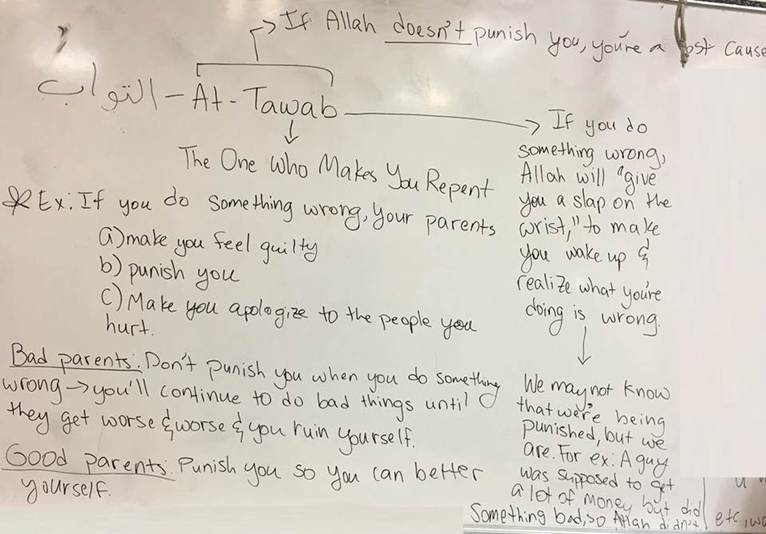 If Allah doesn't punish you, you're a lost cause
التواب - At-Tawab
The One Who Makes You Repent
Ex: If you do something wrong, your parents
a) make you feel guilty
b) punish you
c) Make you apologize to the people you
hurt.
Bad parents: Don't punish you when you do something
wrong → you'll continue to do bad things until
they get worse & worse & you ruin yourself.
Good parents: Punish you so you can better
yourself.
If you do
something wrong,
Allah will "give
you a slap on the
wrist," to make
you wake up &
realize what you're
doing is wrong.
We may not know
that we're being
punished, but we
are. For ex: A guy
was supposed to get
a lot of money but did
something bad, so Allah didn't
etc,